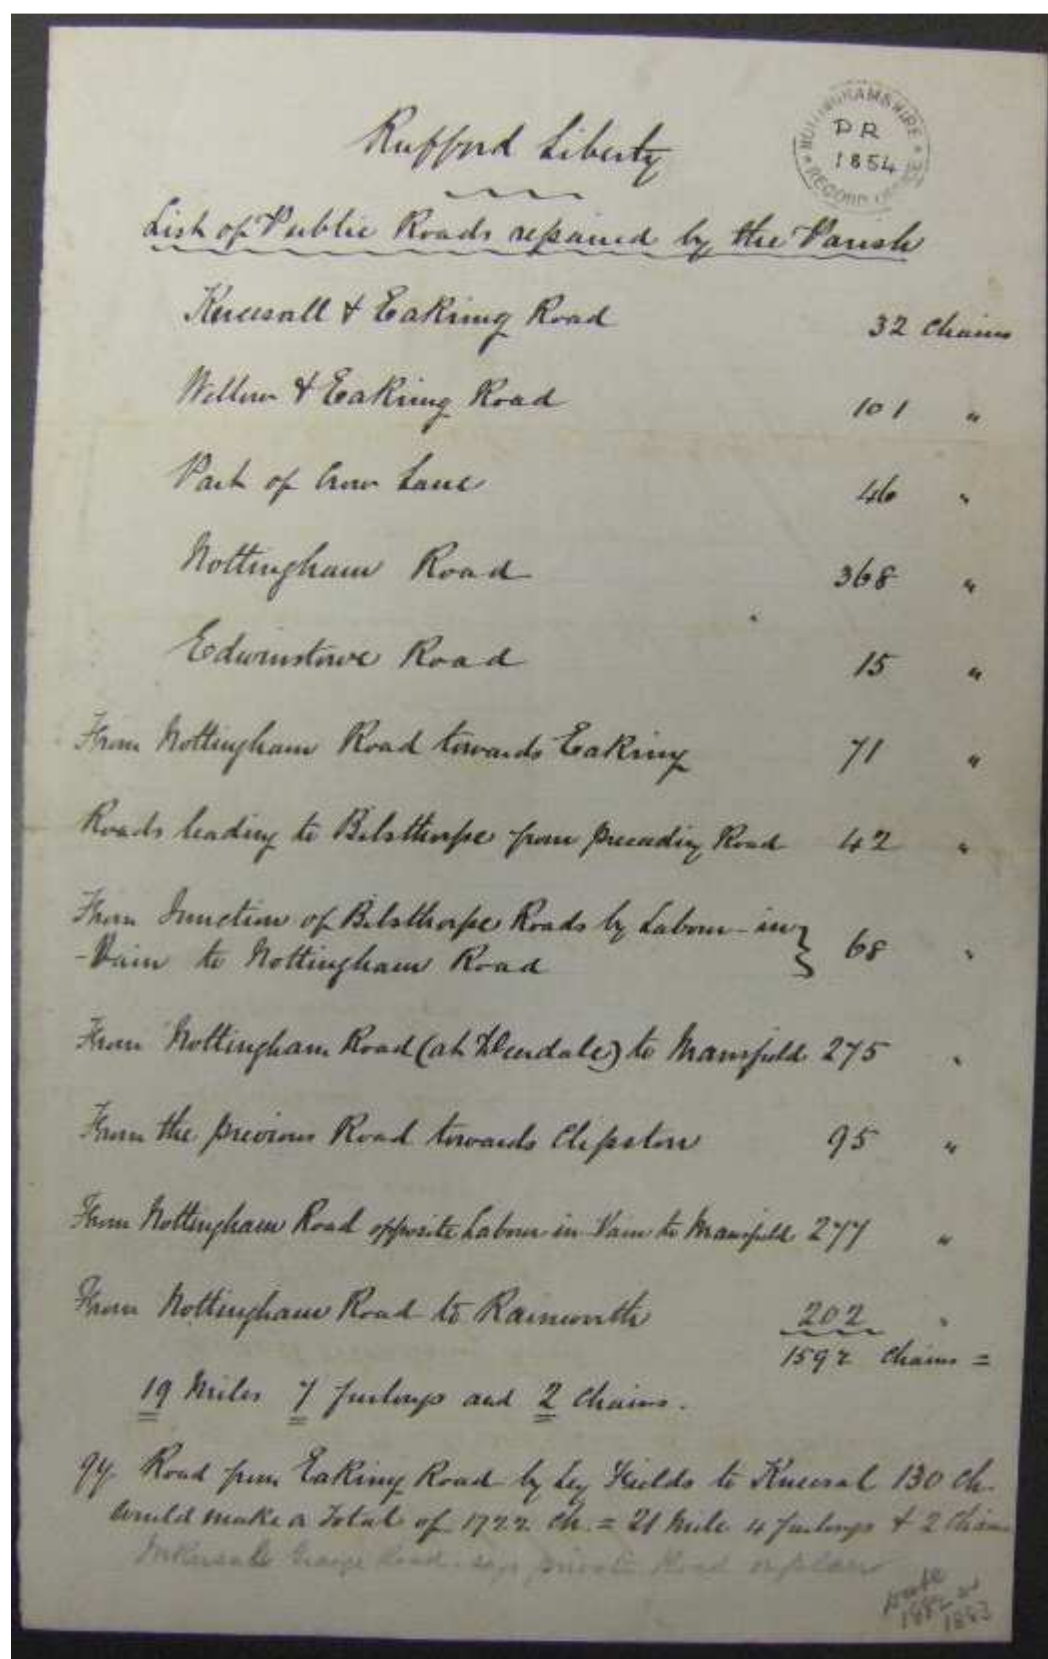 Rufford Liberty
NOTTINGHAMSHIRE RECORD OFFICE
DR
1854
List of Public Roads repaired by the Parish
Kneesall & Eakring Road 32 Chains
Wellow & Eakring Road 101 "
Part of Crow Lane 46 "
Nottingham Road 368 "
Edwinstowe Road 15 "
From Nottingham Road towards Eakring 71 "
Roads leading to Bilsthorpe from preceding Road 42 "
From Junction of Bilsthorpe Roads by Labour-in
-Vain to Nottingham Road 68 "
From Nottingham Road (at Deerdale) to Mansfield 275 "
From the previous Road towards Clipston 95 "
From Nottingham Road opposite Labour in Vain to Mansfield 277 "
From Nottingham Road to Rainworth 202 "
1592 Chains =
19 Miles 7 furlongs and 2 Chains.
Road from Eakring Road by Ley Fields to Kneesal 130 Ch.
would make a Total of 1722 Ch. = 21 Mile 4 furlongs & 2 Chains
Road says private Road on plan
1882 or
1883